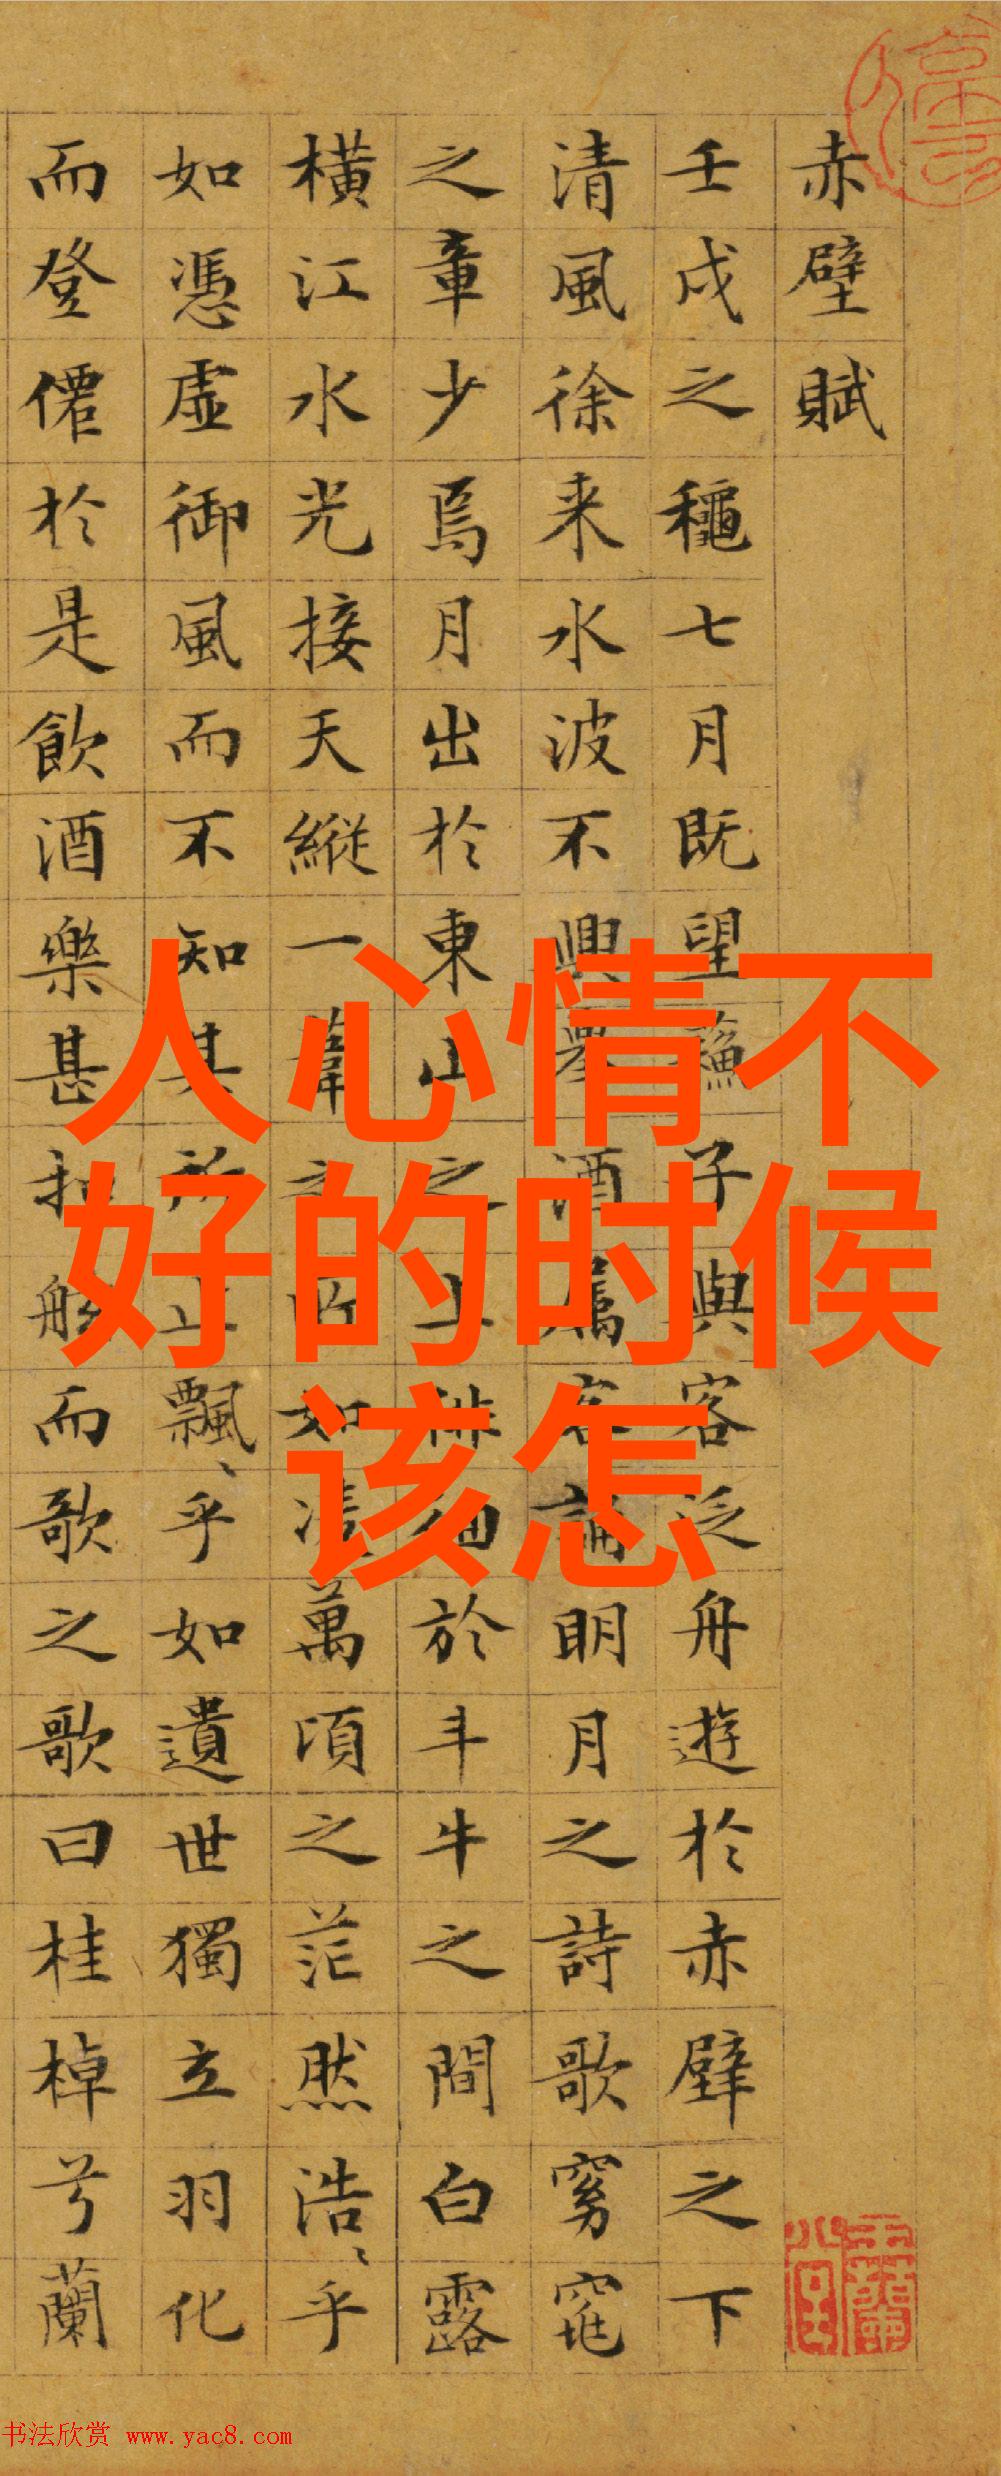 赤壁賦
壬戌之龝七月既望蘓子與客泛舟遊於赤壁之下
清風徐来水波不興舉酒屬客誦明月之詩歌窈窕
之章少焉月出於東山之上徘徊於斗牛之間白露
横江水光接天縱一葦之所如凌萬頃之茫然浩〻乎
如憑虚御風而不知其所止飄〻乎如遺世獨立羽化
而登僊於是飲酒樂甚扣舷而歌之歌曰桂棹兮蘭
人心情不
好的时候
该怎
书法欣赏 www.yac8.com